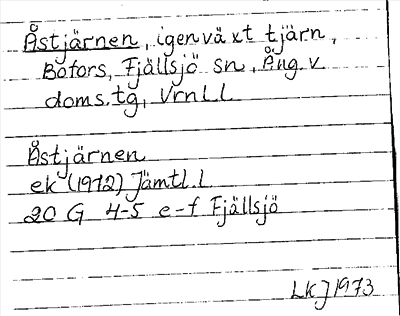 Åstjärnen, igenväxt tjärn,
Bofors, Fjällsjö sn, Ång. v.
doms.tg, Vrnl.l
Åstjärnen
ek (1972) Jämtl.l
20 G 4-5 e-f Fjällsjö
LKJ 1973